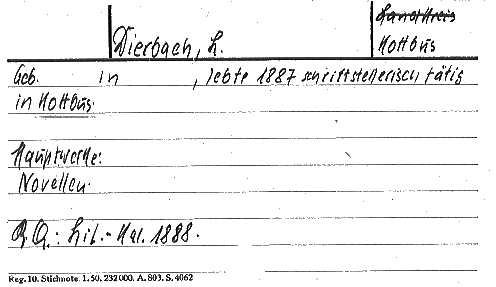 Landkreis
Dierbach, L. Kottbus
Geb. in , lebte 1887 schriftstellerisch tätig
in Kottbus.
Hauptwerke:
Novellen.
B. Q.: Lit.-Kal. 1888.
Reg. 10. Stichnote. 1. 50. 232000. A. 803. S. 4062